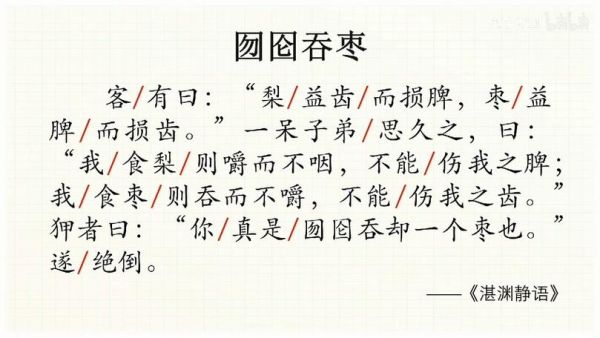 囫囵吞枣
客/有曰：“梨/益齿/而损脾，枣/益
脾/而损齿。”一呆子弟/思久之，曰：
“我/食梨/则嚼而不咽，不能/伤我之脾；
我/食枣/则吞而不嚼，不能/伤我之齿。”
狎者曰：“你/真是/囫囵吞却一个枣也。”
遂/绝倒。
——《湛渊静语》